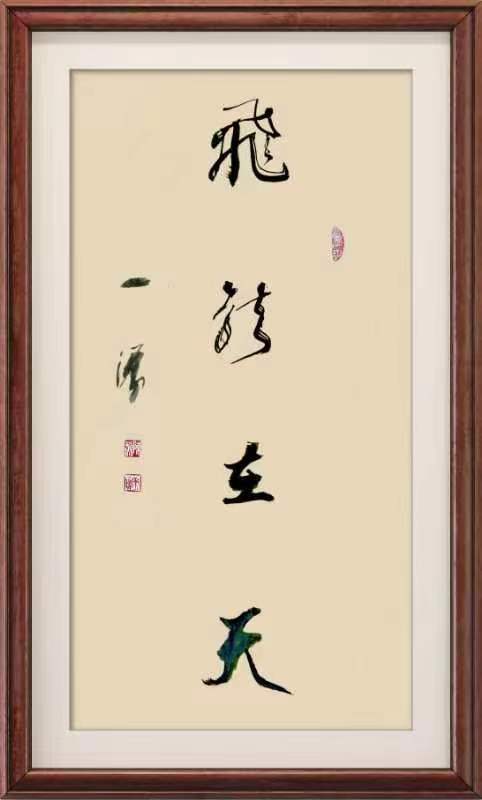 飛龍在天
一